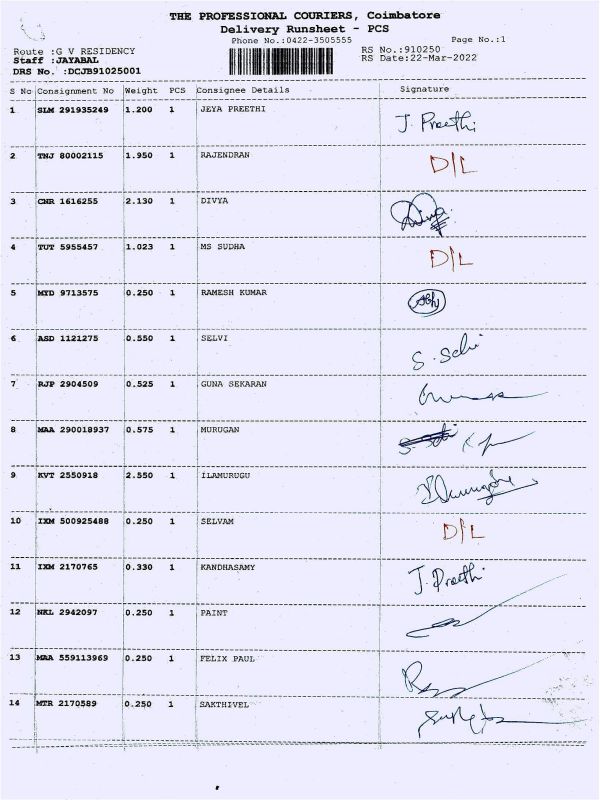 THE PROFESSIONAL COURIERS, Coimbatore
Delivery Runsheet - PCS
Phone No.:0422-3505555 Page No.:1
Route :G V RESIDENCY RS No.:910250
Staff :JAYABAL RS Date:22-Mar-2022
DRS No. :DCJB91025001
S No Consignment No Weight PCS Consignee Details Signature
1 SLM 291935249 1.200 1 JEYA PREETHI J. Preethi
2 TNJ 80002115 1.950 1 RAJENDRAN D/L
3 CNR 1616255 2.130 1 DIVYA Divya
4 TUT 5955457 1.023 1 MS SUDHA D/L
5 MYD 9713575 0.250 1 RAMESH KUMAR
6 ASD 1121275 0.550 1 SELVI
7 RJP 2904509 0.525 1 GUNA SEKARAN
8 MAA 290018937 0.575 1 MURUGAN
9 KVT 2550918 2.550 1 ILAMURUGU
10 IXM 500925488 0.250 1 SELVAM D/L
11 IXM 2170765 0.330 1 KANDHASAMY J. Preethi
12 NKL 2942097 0.250 1 PAINT
13 MAA 559113969 0.250 1 FELIX PAUL
14 MTR 2170589 0.250 1 SAKTHIVEL